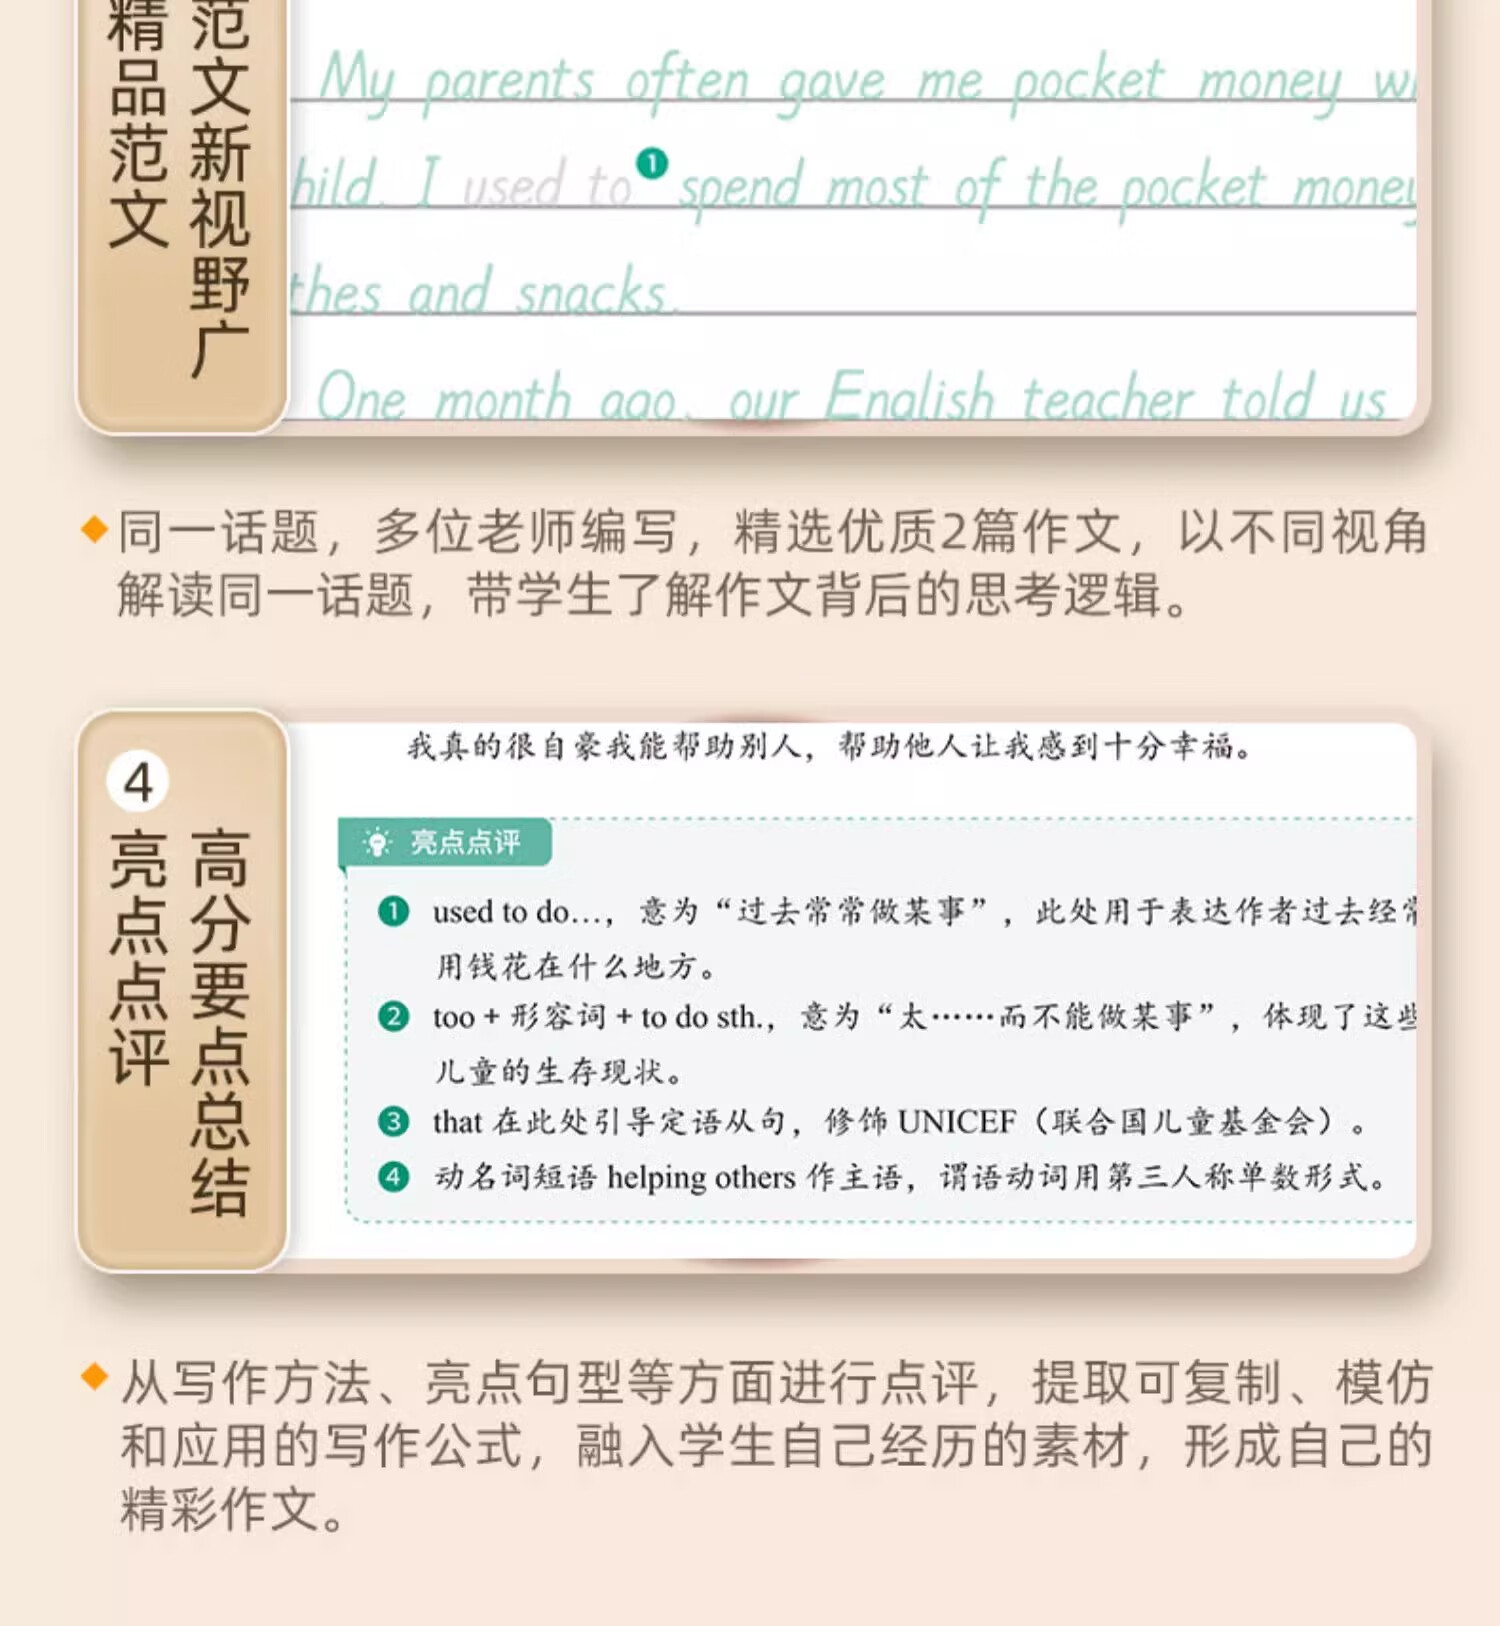 精品范文
范文新视野广
My parents often gave me pocket money
hild. I used to❶ spend most of the pocket money
thes and snacks.
One month ago, our English teacher told us
◆同一话题，多位老师编写，精选优质2篇作文，以不同视角
解读同一话题，带学生了解作文背后的思考逻辑。
④
亮点点评
高分要点总结
我真的很自豪我能帮助别人，帮助他人让我感到十分幸福。
亮点点评
❶ used to do…，意为“过去常常做某事”，此处用于表达作者过去经常
用钱花在什么地方。
❷ too + 形容词 + to do sth.，意为“太……而不能做某事”，体现了这些
儿童的生存现状。
❸ that 在此处引导定语从句，修饰 UNICEF（联合国儿童基金会）。
❹ 动名词短语 helping others 作主语，谓语动词用第三人称单数形式。
◆从写作方法、亮点句型等方面进行点评，提取可复制、模仿
和应用的写作公式，融入学生自己经历的素材，形成自己的
精彩作文。